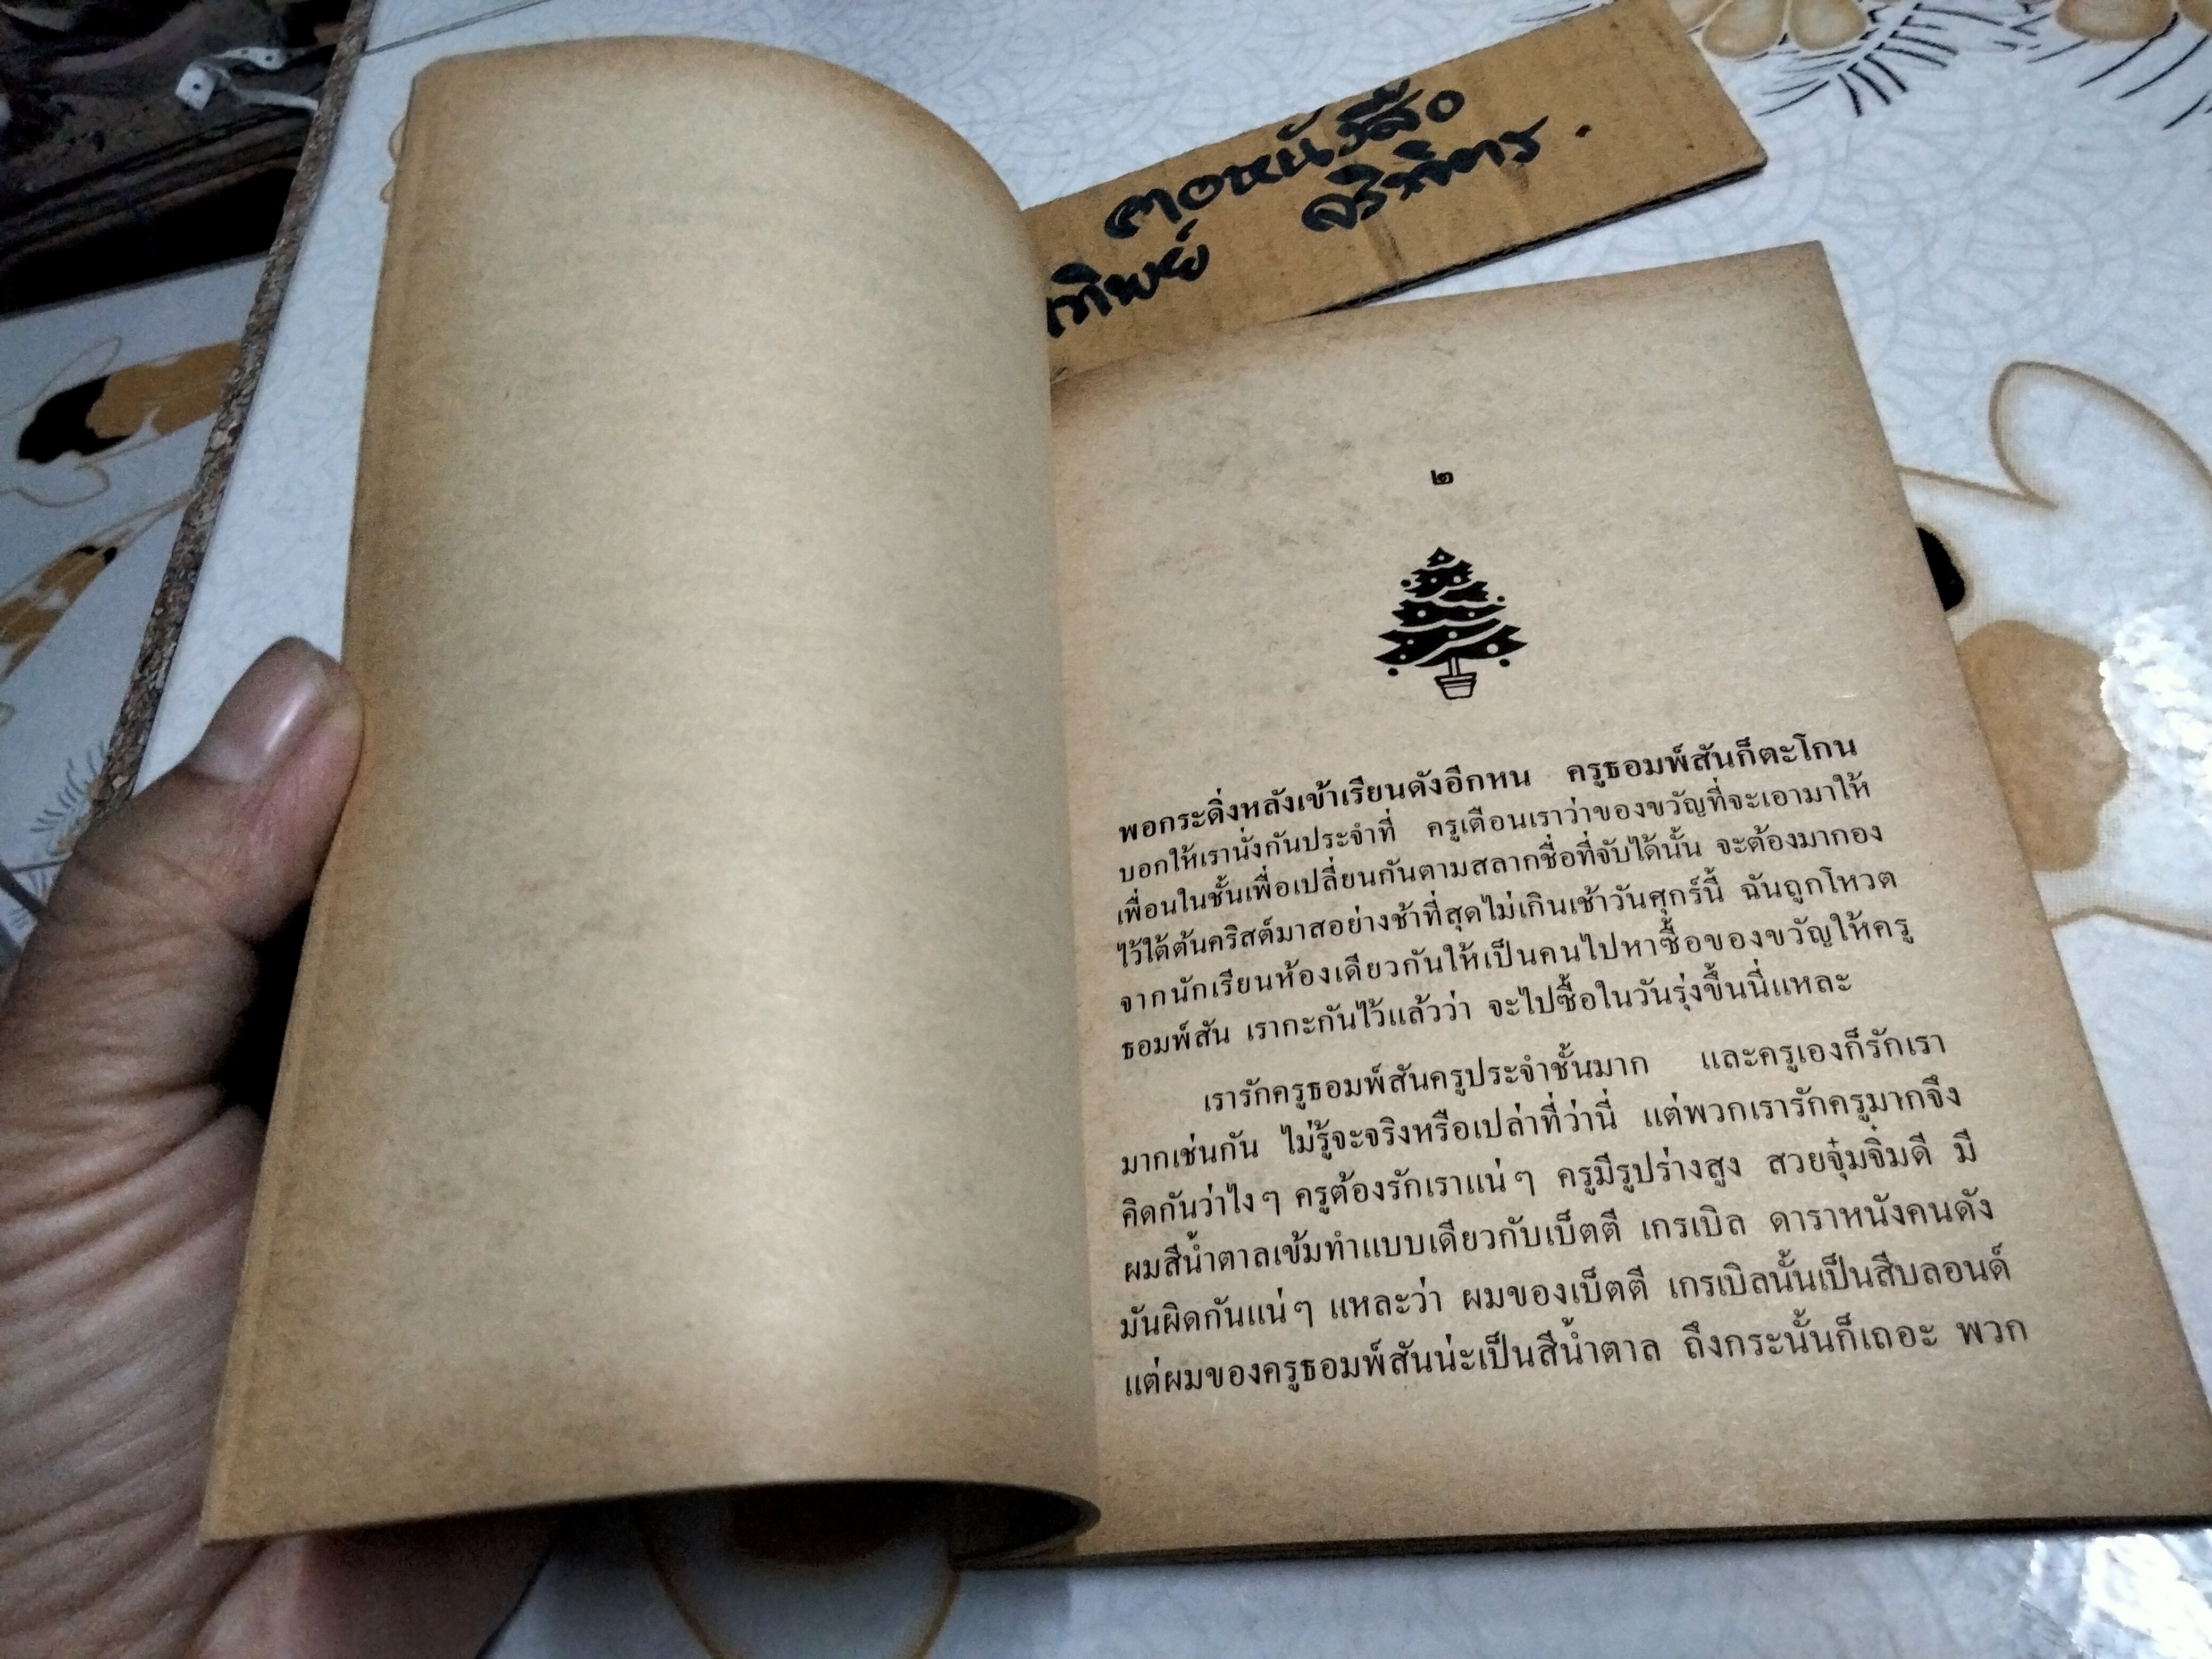 คอหนังสือ
ทิพย์ ศรีจิตร .
๒
พอกระดิ่งหลังเข้าเรียนดังอีกหน ครูธอมพ์สันก็ตะโกน
บอกให้เรานั่งกันประจำที่ ครูเตือนเราว่าของขวัญที่จะเอามาให้
เพื่อนในชั้นเพื่อเปลี่ยนกันตามสลากชื่อที่จับได้นั้น จะต้องมากอง
ไว้ใต้ต้นคริสต์มาสอย่างช้าที่สุดไม่เกินเช้าวันศุกร์นี้ ฉันถูกโหวต
จากนักเรียนห้องเดียวกันให้เป็นคนไปหาซื้อของขวัญให้ครู
ธอมพ์สัน เรากะกันไว้แล้วว่า จะไปซื้อในวันรุ่งขึ้นนี่แหละ
เรารักครูธอมพ์สันครูประจำชั้นมาก และครูเองก็รักเรา
มากเช่นกัน ไม่รู้จะจริงหรือเปล่าที่ว่านี่ แต่พวกเรารักครูมากจึง
คิดกันว่าไงๆ ครูต้องรักเราแน่ๆ ครูมีรูปร่างสูง สวยจุ๋มจิ๋มดี มี
ผมสีน้ำตาลเข้มทำแบบเดียวกับเบ็ตตี เกรเบิล ดาราหนังคนดัง
มันผิดกันแน่ๆ แหละว่า ผมของเบ็ตตี เกรเบิลนั้นเป็นสีบลอนด์
แต่ผมของครูธอมพ์สันน่ะเป็นสีน้ำตาล ถึงกระนั้นก็เถอะ พวก